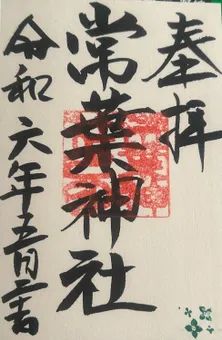 奉拝
常葉神社
令和六年五月二十二日